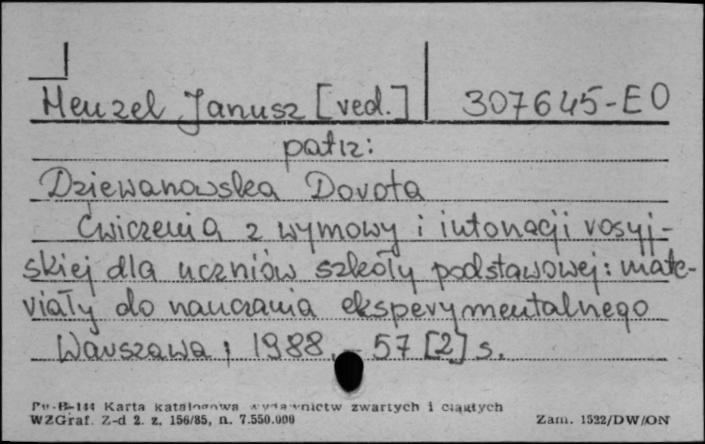 Menzel Janusz [red.] 307645-EO
patrz:
Dziewanowska Dorota
Ćwiczenia z wymowy i intonacji rosyj-
skiej dla uczniów szkoły podstawowej: mate-
riały do nauczania eksperymentalnego
Warszawa, 1988. - 57 [2] s.
Pu-B-144 Karta katalogowa wydawnictw zwartych i ciągłych
WZGraf. Z-d 2. z. 156/85, n. 7.550.000 Zam. 1522/DW/ON